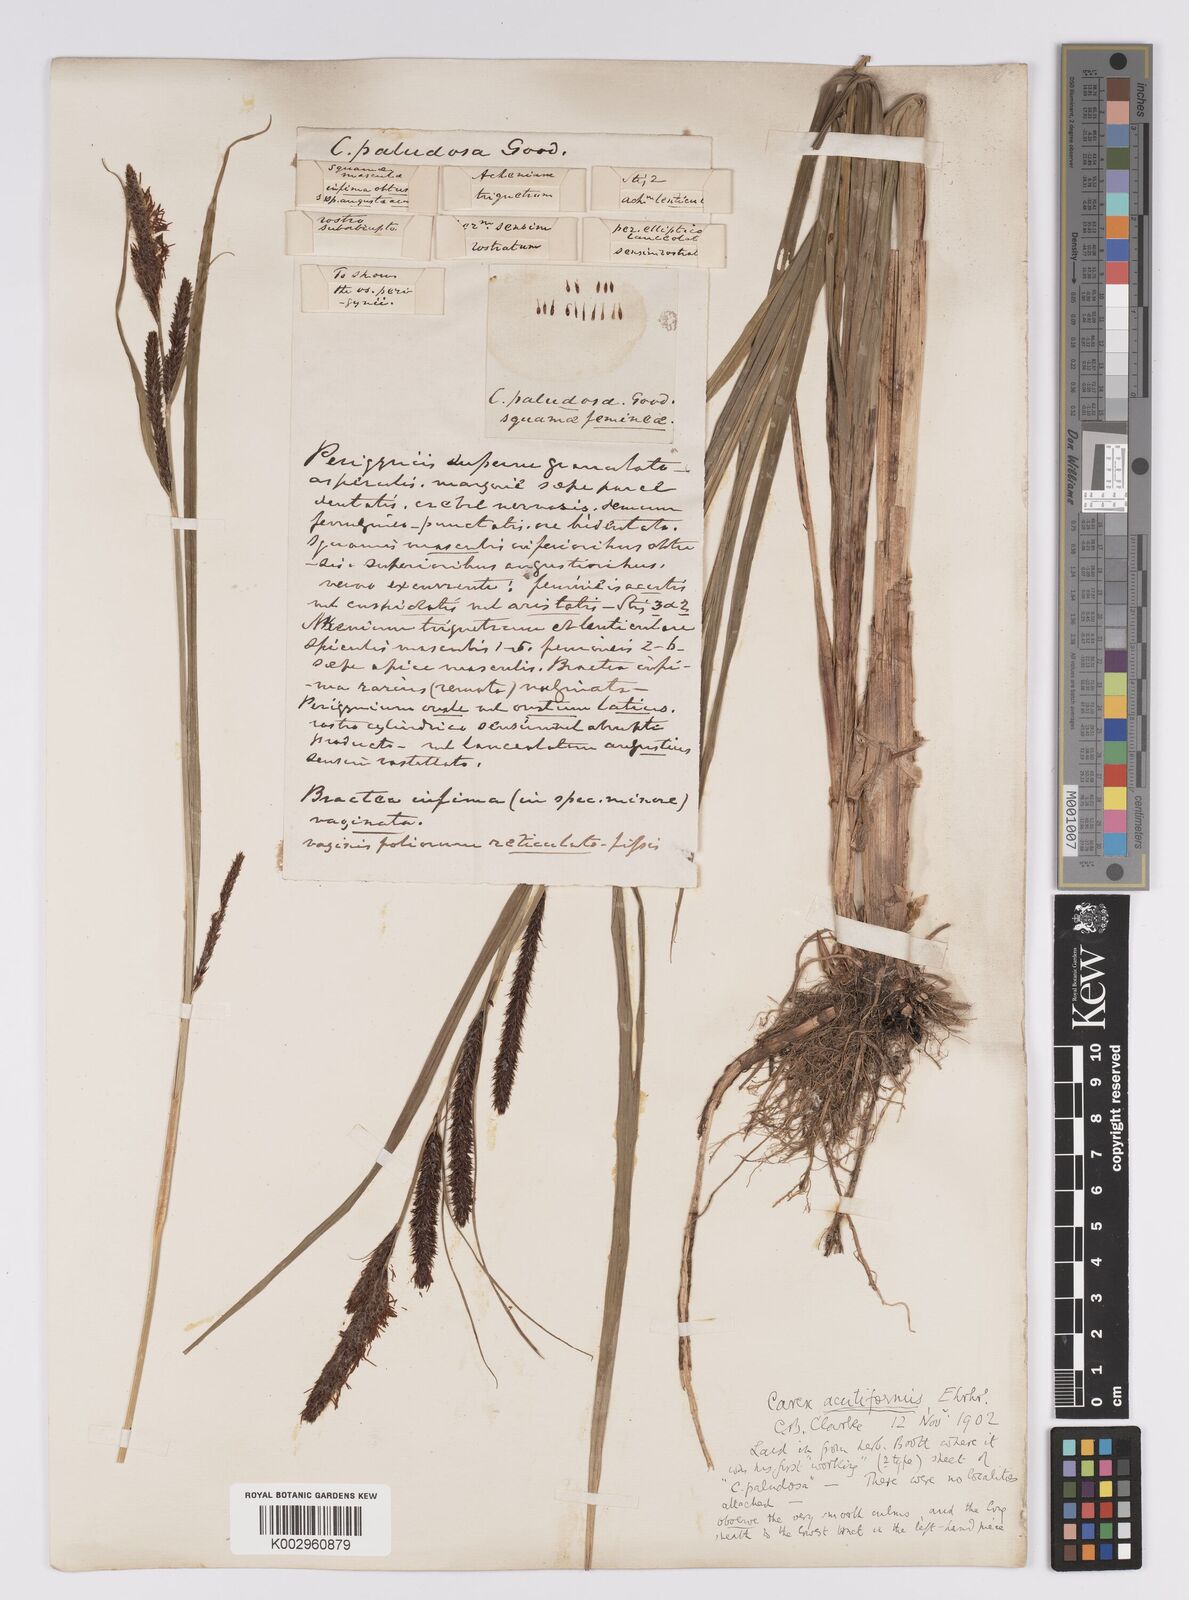 C. paludosa Good.
Squamæ
mascula
infima obtus
sup. angusta acu
Achenium
triquetrum
Sti; 2
achm lenticul
rostro
subabrupto
sensim
rostratum
per. elliptico
lanceolat
sensim rostrat
To show
the os. peri
-gynii.
C. paludosa. Good.
squamæ femineæ.
Perigyniis superne granulato-
asperulis. margine sæpe parce
dentatis. crebre nervosis. demum
ferrugineo-punctatis. ore bidentato.
Squamis masculis inferioribus obtu
-sis: superioribus angustioribus.
nervo excurrente: femineis acutis
vel cuspidatis vel aristatis - Stis 3 a 2
Achenium triquetrum et lenticulare
Spiculis masculis 1-5. femineis 2-6-
sæpe apice masculis. Bractea infi-
-ma rarius (remota) vaginata-
Perigynium ovale vel ovatum latius.
rostro cylindrico sensim vel abrupte
producto - vel lanceolatum angustius
sensim rostellato.
Bractea infima (in spec. minore)
vaginata.
vaginis foliorum reticulato-fissis
inches
Don Williams
M001007
centimeters
Royal Botanic Gardens
Kew
0 1 2 3 4 5 6 7 8 9 10
cm
copyright reserved
Carex acutiformis, Ehrhr.
C.B. Clarke 12 Novr. 1902
Laid in from herb. Boott where it
was his first "working" (? type) sheet of
"C. paludosa" — There were no localities
attached —
observe the very smooth culms, and the long
sheath to the lowest bract in the left-hand piece
ROYAL BOTANIC GARDENS KEW
K002960879